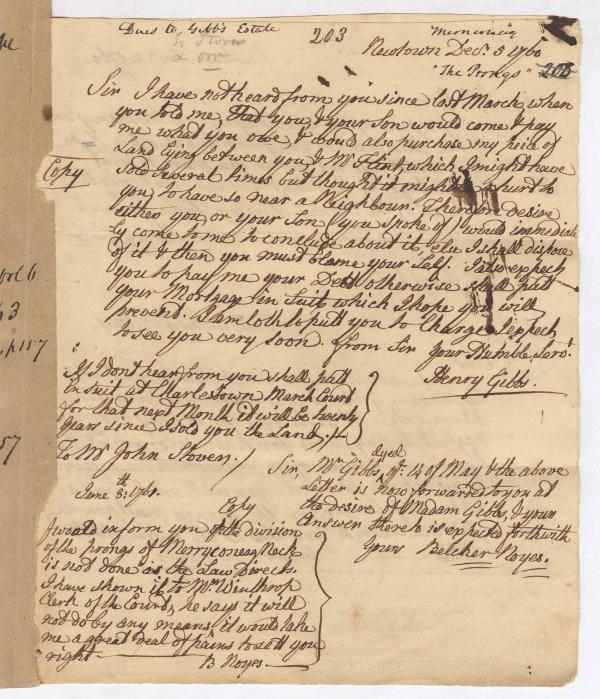 Dues to Gibbs Estate
203
Merriconeag
to Stover
& Orr
Newtown Decr. 5 1760
"The Prongs" 208
Sir I have not heard from you since last March, when
you told me, that you & your Son would come & pay
me what you owe, & would also purchase my peice of
Land lying between you & Mr Flint, which I might have
Copy
sold several times but thought it might a hurt to
you, to have so near a Neighbour. Therefore desire
either you, or your Son (you spoke of) would immediate
ly come to me to conclude about it, else I shall dispose
of it & then you must blame your Self. I also expect
you to pay me your Debt otherwise shall putt
your Mortgage in Suit, which I hope you will
prevent. I am loth to putt you to Charge I expect
to see you very soon. from Sir Your Humble Servt.
Henry Gibbs.
If I dont hear from you shall putt
in suit at Charlestown March Court
for that next Month it will be twenty
Years since I sold you the Land,
To Mr John Stover. /
Sir, Mr Gibbs dyed ye. 14 of May & the above
Letter is now forwarded to you at
the desire of Madam Gibbs, & your
Answer thereto is expected forthwith
Yours Belcher Noyes.
June 8th: 1761.
Copy
I would inform you yt the division
of the prongs of Merryconeag Neck
is not done as the Law Directs.
I have shown it to Mr Winthrop
Clerk of the Court, he says it will
not do by any means, it would take
me a great deal of pains to sett you
right
B Noyes.
vol 6
63
p 157
57